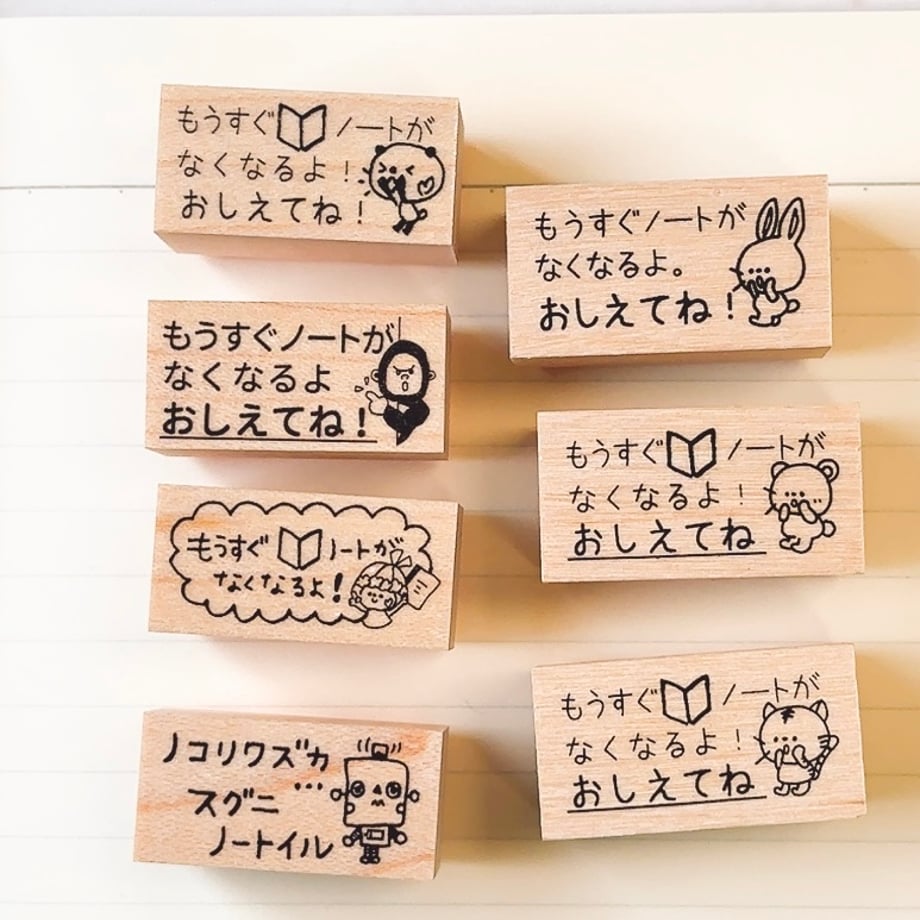 もうすぐ ノートが
なくなるよ！
おしえてね！
もうすぐノートが
なくなるよ。
おしえてね！
もうすぐノートが
なくなるよ
おしえてね！
もうすぐ ノートが
なくなるよ！
おしえてね
もうすぐ ノートが
なくなるよ！
もうすぐ ノートが
なくなるよ！
おしえてね
ノコリワズカ
…
スグニ
ノートイル